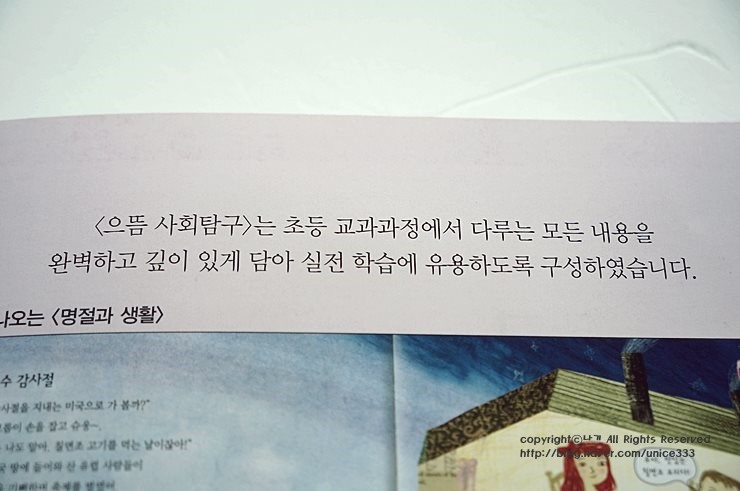 <으뜸 사회탐구>는 초등 교과과정에서 다루는 모든 내용을
완벽하고 깊이 있게 담아 실전 학습에 유용하도록 구성하였습니다.
나오는 <명절과 생활>
수 감사절
사절을 지내는 미국으로 가 볼까?"
손을 잡고 슈웅~.
나도 알아. 칠면조 고기를 먹는 날이잖아!"
땅에 들어와 산 유럽 사람들이
copyright©낭기 All Rights Reserved
http://blog.naver.com/unice333
칠면조 요리다!